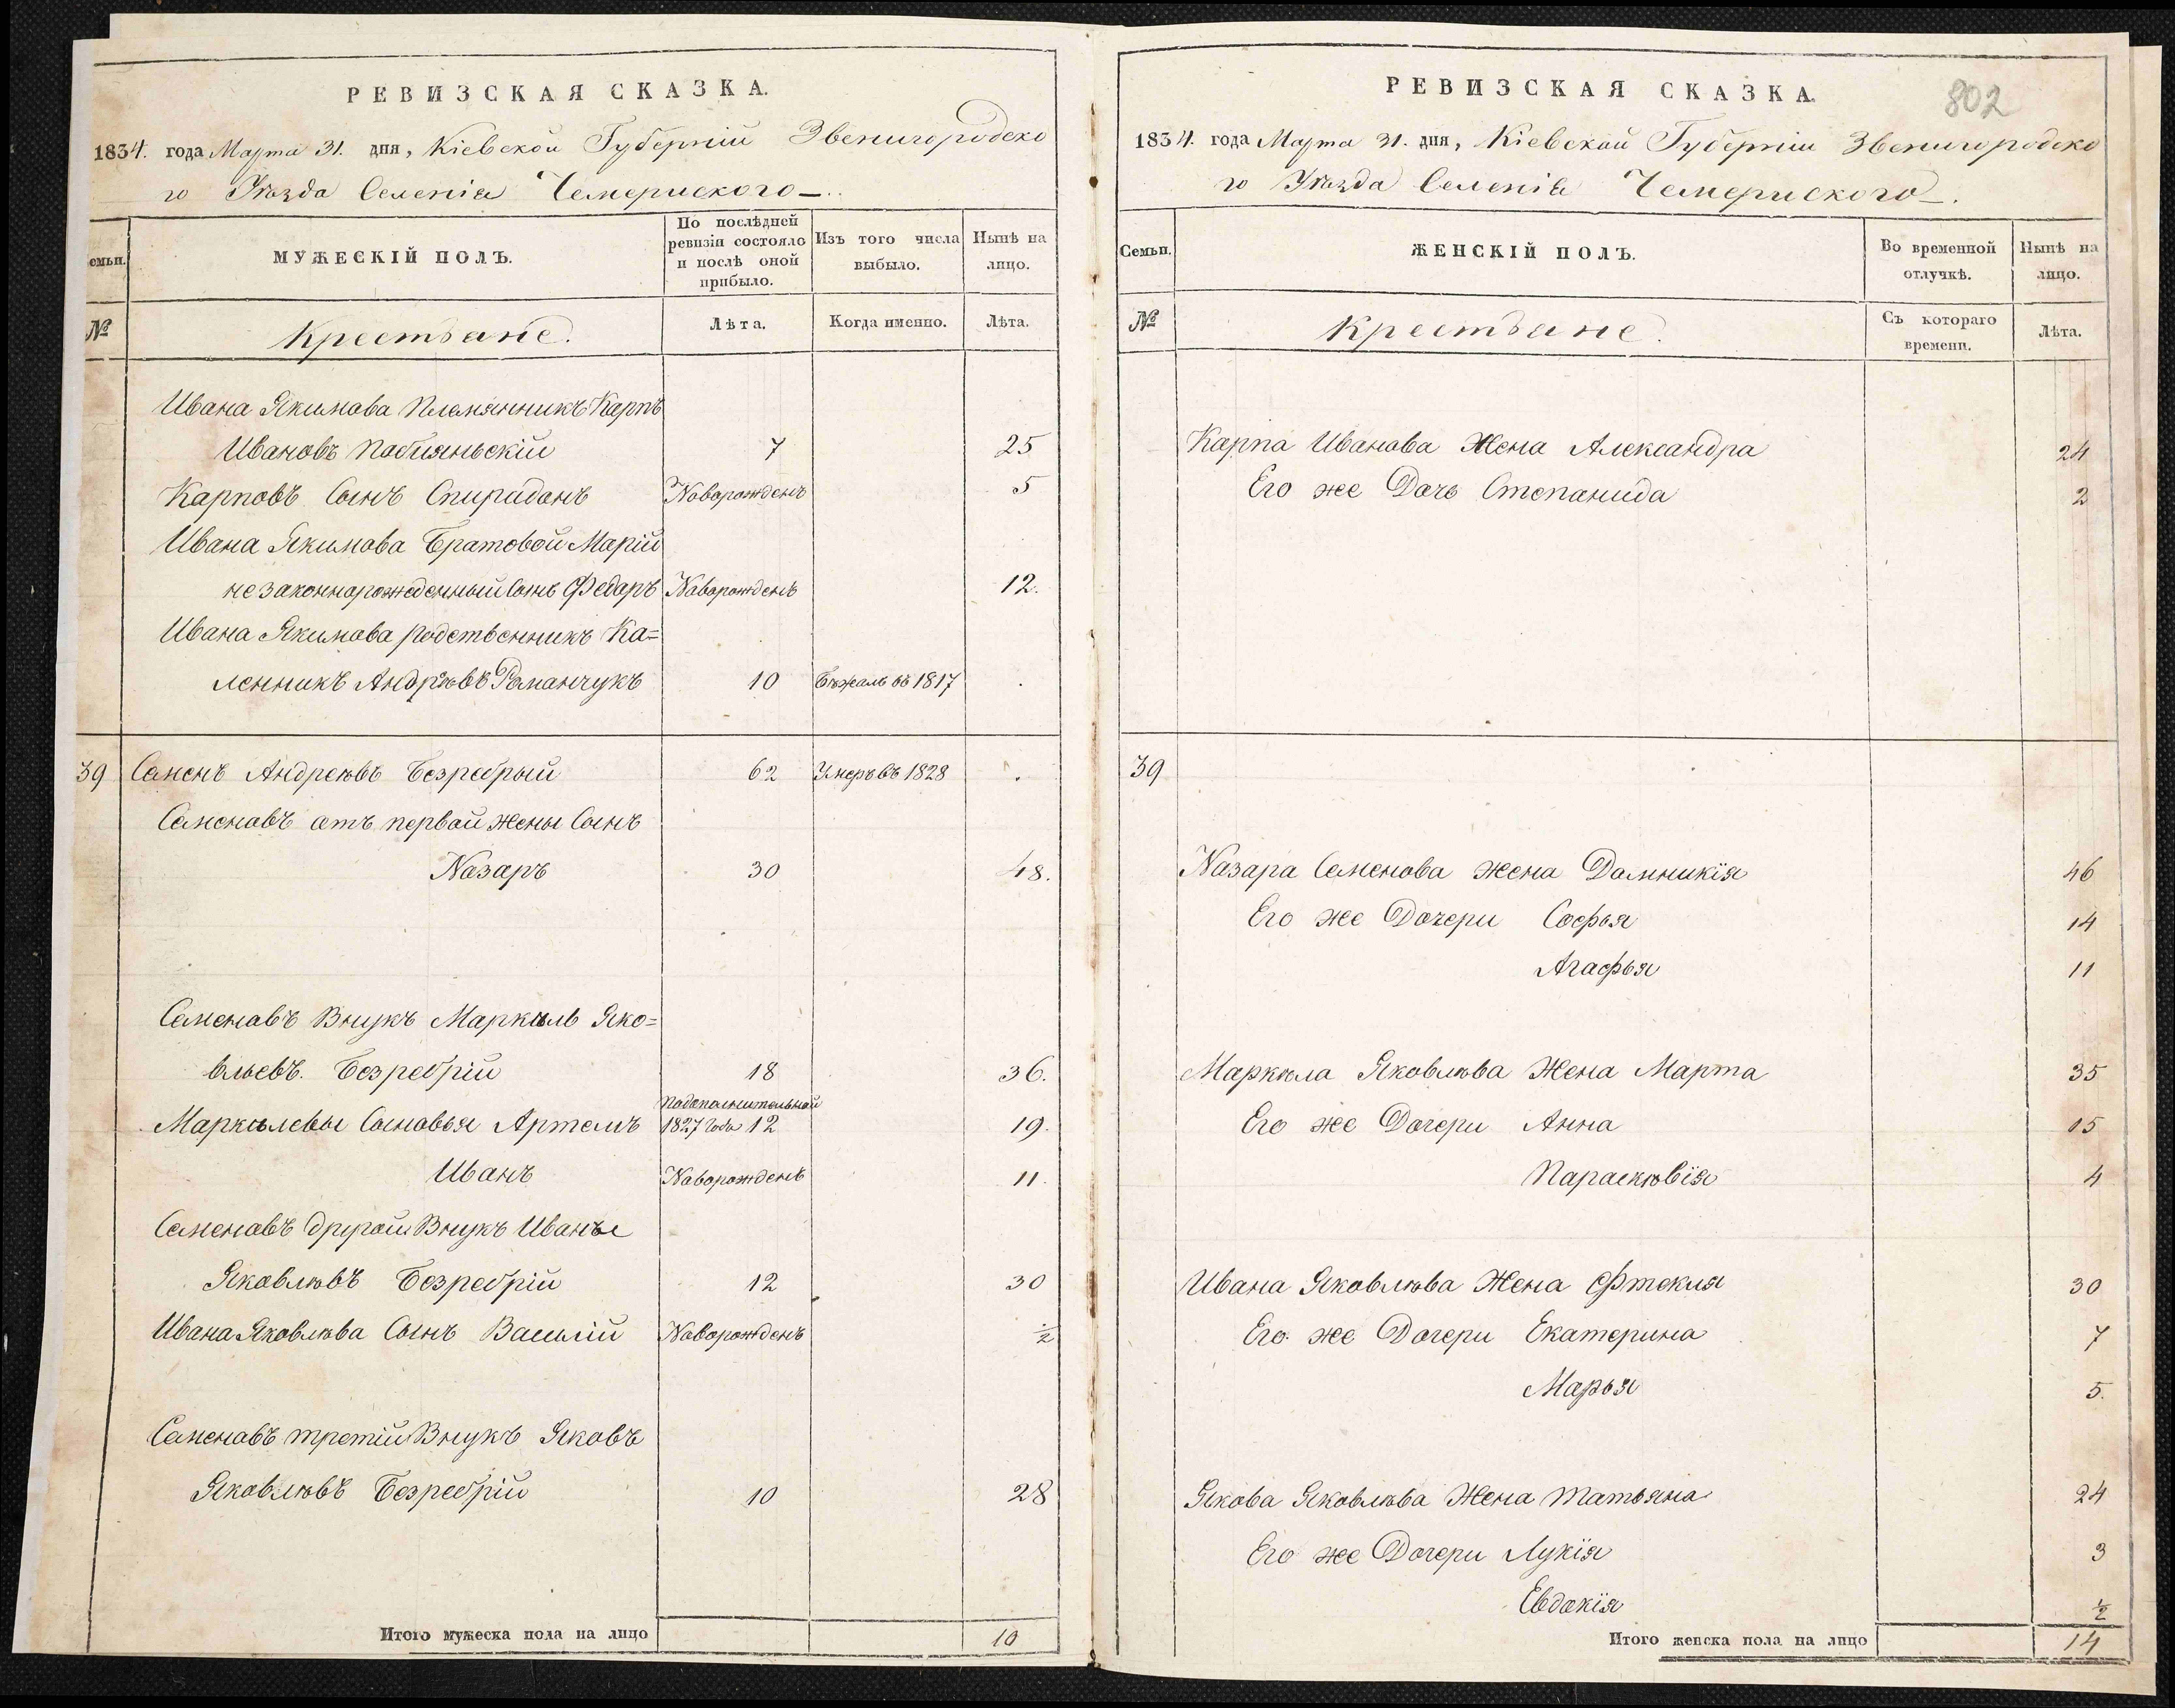 РЕВИЗСКАЯ СКАЗКА.
1834. года Марта 31. дня, Кіевской Губерніи Звенигородско
го Уѣзда Селенія Чемериского
емьи.
МУЖЕСКІЙ ПОЛЪ.
По послѣдней ревизіи состояло и послѣ оной прибыло.
Изъ того числа выбыло.
Нынѣ на лицо.
№
Крестьяне.
Лѣта.
Когда именно.
Лѣта.
Ивана Якимова Племянникъ Карпъ
Ивановъ 7 25
Карповъ Сынъ Спирадонъ Новорожденъ 5
Ивана Якимова Братовой Маріи
незаконнорожденный Сынъ Федаръ Новорожденъ 12.
Ивана Якимова родственникъ Ка=
ленникъ Андрѣевъ Романчукъ 10 Бѣжалъ въ 1817
39 Семенъ Андреевъ Безребрый 62 Умеръ въ 1828
Семеновъ отъ первой жены Сынъ
Назаръ 30 48.
Семеновъ Внукъ Маркѣлъ Яко=
вльевъ. Безребрій 18 36.
подополнительной
Маркѣлевы Сыновья Артемъ 1827 года 12 19.
Иванъ Новорожденъ 11.
Семеновъ другой Внукъ Иванъ
Яковлѣвъ Безребрій 12 30
Ивана Яковлѣва Сынъ Василій Новорожденъ ½
Семеновъ третій Внукъ Яковъ
Яковлѣвъ Безребрій 10 28
Итого мужеска пола на лицо 10
802
РЕВИЗСКАЯ СКАЗКА.
1834. года Марта 31. дня, Кіевской Губерніи Звенигородско
го Уѣзда Селенія Чемериского.
Семьи.
ЖЕНСКІЙ ПОЛЪ.
Во временной отлучкѣ.
Нынѣ на лицо.
№
Крестьяне.
Съ котораго времени.
Лѣта.
Карпа Иванова Жена Александра 24
Его же Дочь Степанида 2
39
Назара Семенова жена Домникія 46
Его же Дочери Софья 14
Агафья 11
Маркѣла Яковлѣва Жена Марта 35
Его же Дочери Анна 15
Параскѣвія 4
Ивана Яковлѣва Жена Фтекля 30
Его же Дочери Екатерина 7
Марья 5.
Якова Яковлѣва Жена Татьяна 24
Его же Дочери Лукія 3
Евдокія ½
Итого женска пола на лицо 14